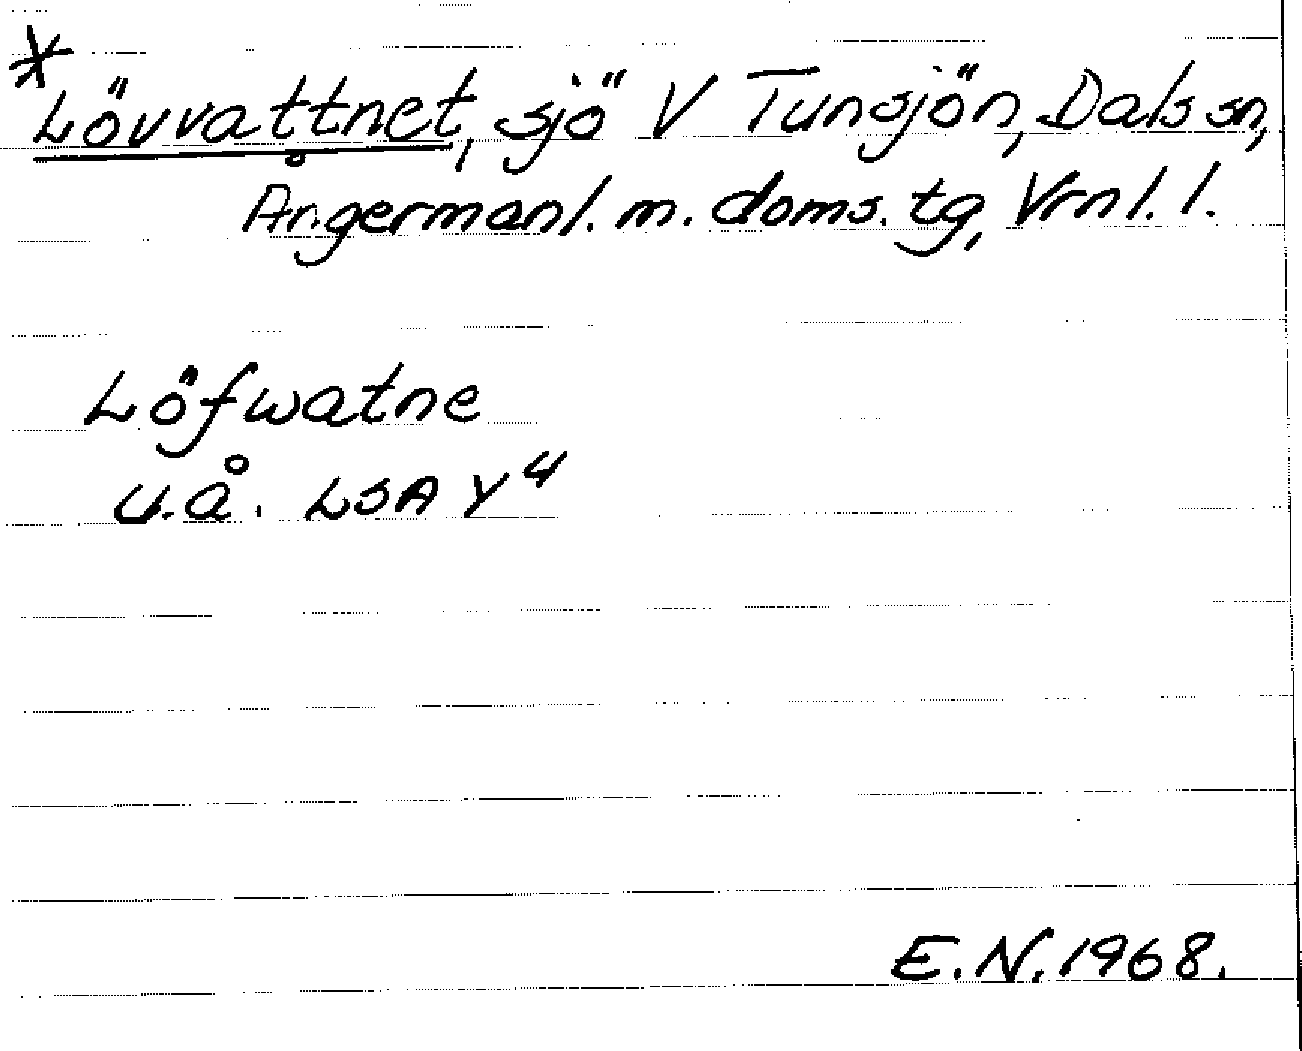 * Lövvattnet, sjö V Tunsjön, Dals sn,
Ångermanl. m. doms. tg, Vrnl. l.
Löfwatne
u.å. LSA Y⁴
E.N. 1968.